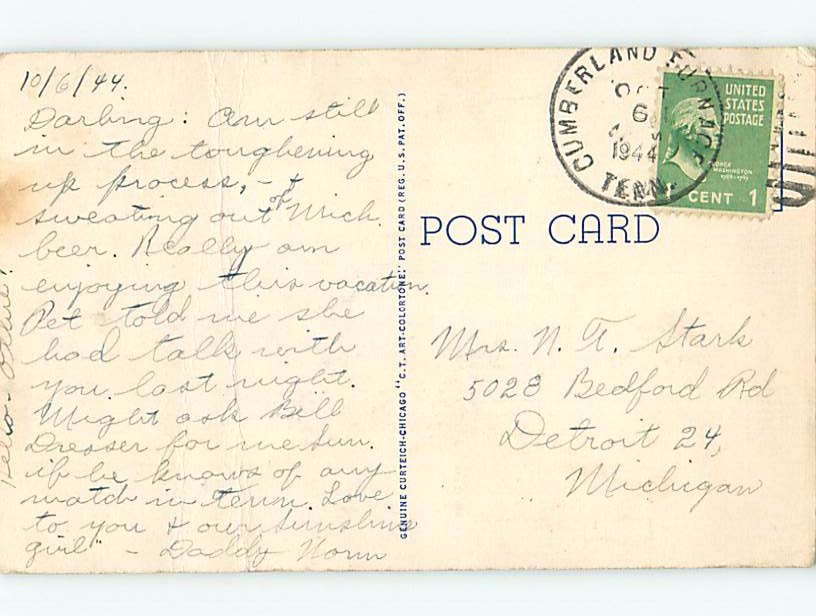 10/6/44.
Darling: Am still
in the toughening
up process, - &
sweating out of Mich.
beer. Really am
enjoying this vacation.
Pet told me she
had talk with
you last night.
Might ask Bill
Dresser for me Sun.
if he knows of any
match in Tenn. Love
to you & our "Sunshine
girl" - Daddy Norm
Hello
GENUINE CURTEICH-CHICAGO "C.T. ART-COLORTONE" POST CARD (REG. U. S. PAT. OFF.)
POST CARD
CUMBERLAND FURNACE
OCT
6
1944
TENN.
UNITED
STATES
POSTAGE
GEORGE
WASHINGTON
CENT 1
Mrs. N. A. Stark
5028 Bedford Rd
Detroit 24,
Michigan